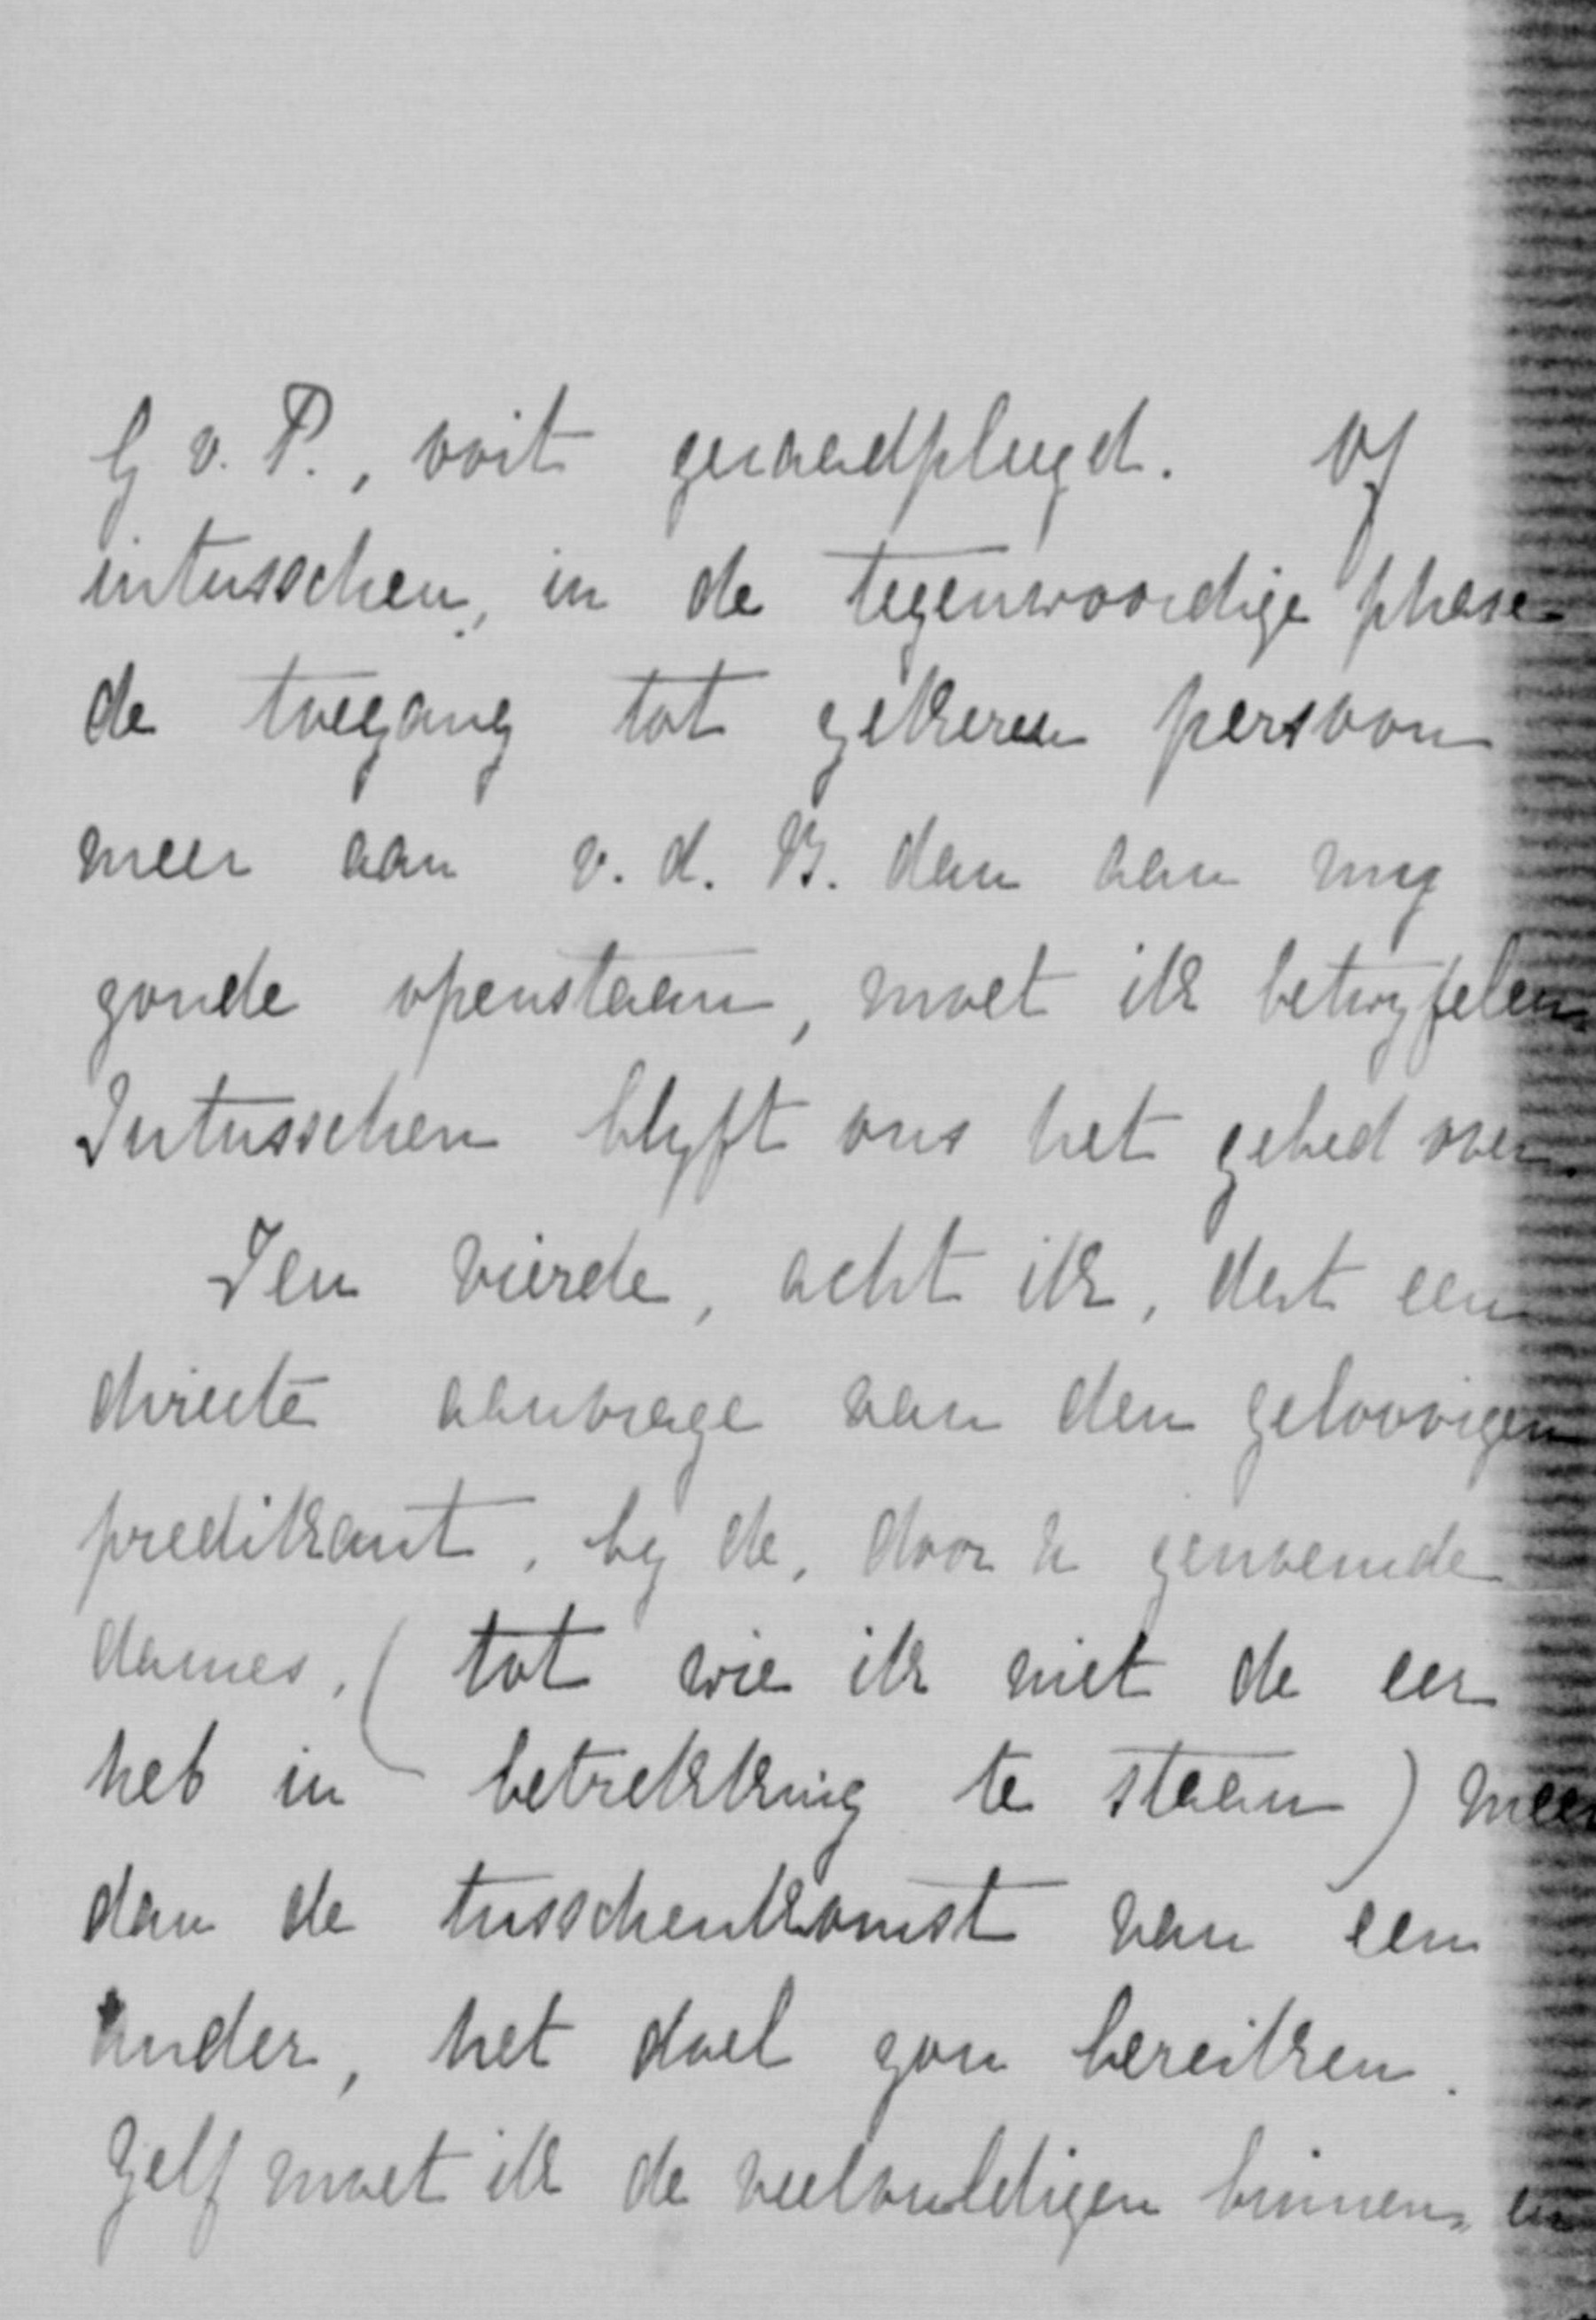 G v. P., ooit geraadpleegd. Of
intusschen, in de tegenwoordige phase
de toegang tot zekeren persoon
meer aan v. d. B. dan aan my
zoude openstaan, moet ik betwyfelen
Intusschen blyft ons het gebed over.
Ten vierde, acht ik, dat een
directe aanvrage van den geloovigen
predikant, by de, door u genoemde
dames, (tot wie ik niet de eer
heb in betrekking te staan) meer
dan de tusschenkomst van een
ander, het doel zou bereiken.
Zelf moet ik de veelvuldigen binnen- en